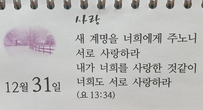 사랑
새 계명을 너희에게 주노니
서로 사랑하라
내가 너희를 사랑한 것같이
너희도 서로 사랑하라
(요 13:34)
12월 31일